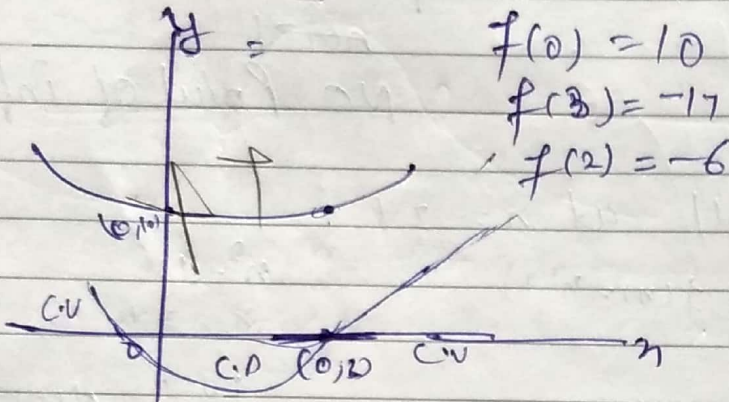 y =
f(0) = 10
f(3) = -17
f(2) = -6
(0,10)
C.U
0
C.D
(0,2)
C.U
x